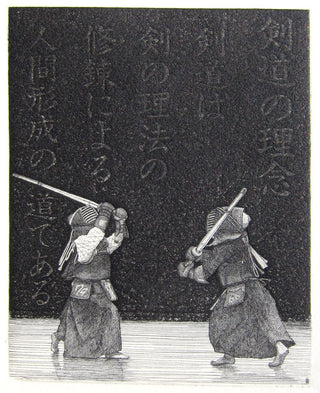 剣道の理念
剣道は
剣の理法の
修錬による
人間形成の道である